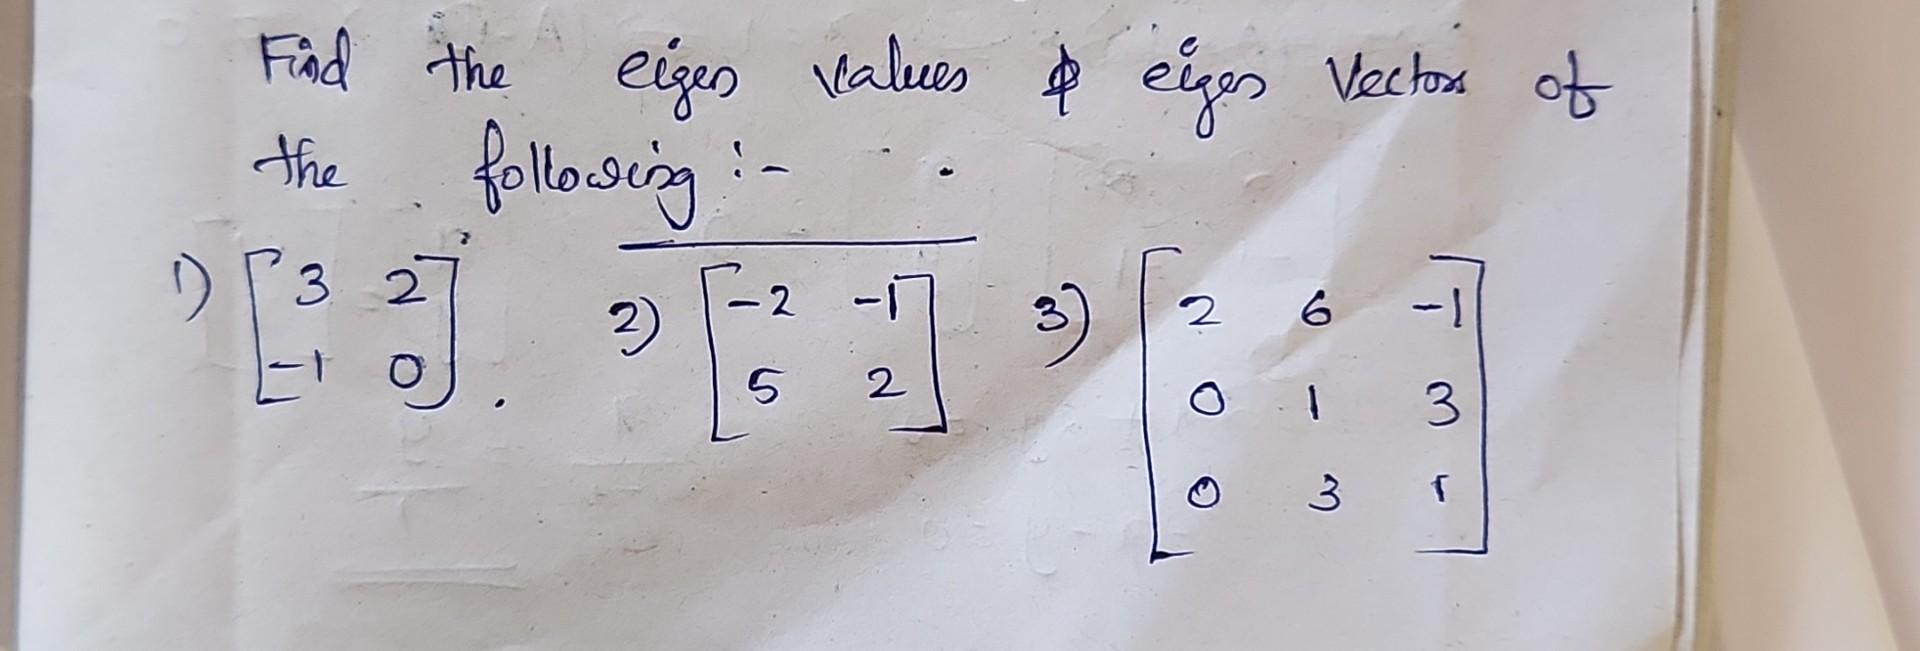 Find the eigen values & eigen Vectors of
the following :-
1) [3 2] 2) [-2 -1] 3) [2 6 -1]
[-1 0]. [5 2] [0 1 3]
[0 3 1]